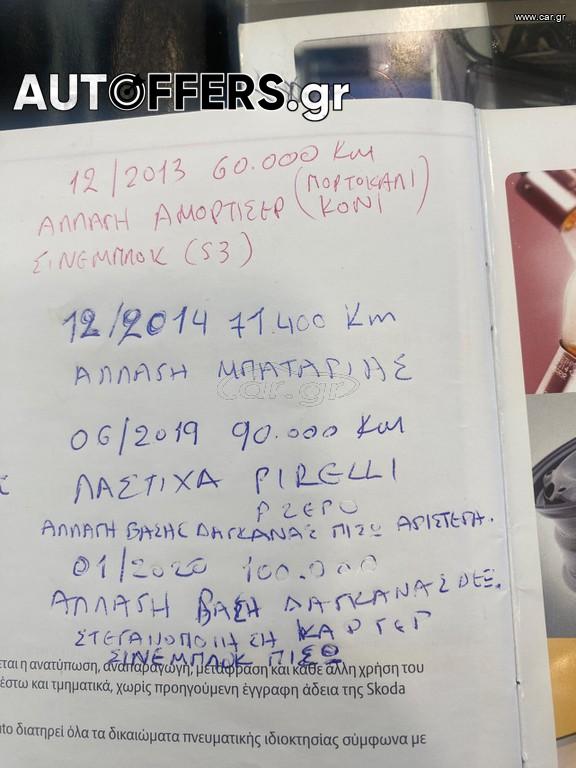 www.car.gr
AUTOFFERS.gr
12/2013 60.000 Km
ΑΛΛΑΓΗ ΑΜΟΡΤΙΣΕΡ (ΠΟΡΤΟΚΑΛΙ ΚΟΝΙ)
ΣΙΝΕΜΠΛΟΚ (S3)
12/2014 71.400 Km
ΑΛΛΑΓΗ ΜΠΑΤΑΡΙΑΣ
car.gr
06/2019 90.000 Km
ΛΑΣΤΙΧΑ PIRELLI
P ZERO
ΑΛΛΑΓΗ ΒΑΣΗΣ ΔΑΓΚΑΝΑΣ ΠΙΣΩ ΑΡΙΣΤΕΡΑ.
01/2020 100.000
ΑΛΛΑΓΗ ΒΑΣΗ ΔΑΓΚΑΝΑΣ ΔΕΞ.
ΣΤΕΓΑΝΟΠΟΙΗΣΗ ΚΑΡΤΕΡ
ΣΙΝΕΜΠΛΟΚ ΠΙΣΩ
εται η ανατύπωση, αναπαραγωγή, μετάφραση και κάθε άλλη χρήση του
έστω και τμηματικά, χωρίς προηγούμενη έγγραφη άδεια της Skoda
uto διατηρεί όλα τα δικαιώματα πνευματικής ιδιοκτησίας σύμφωνα με